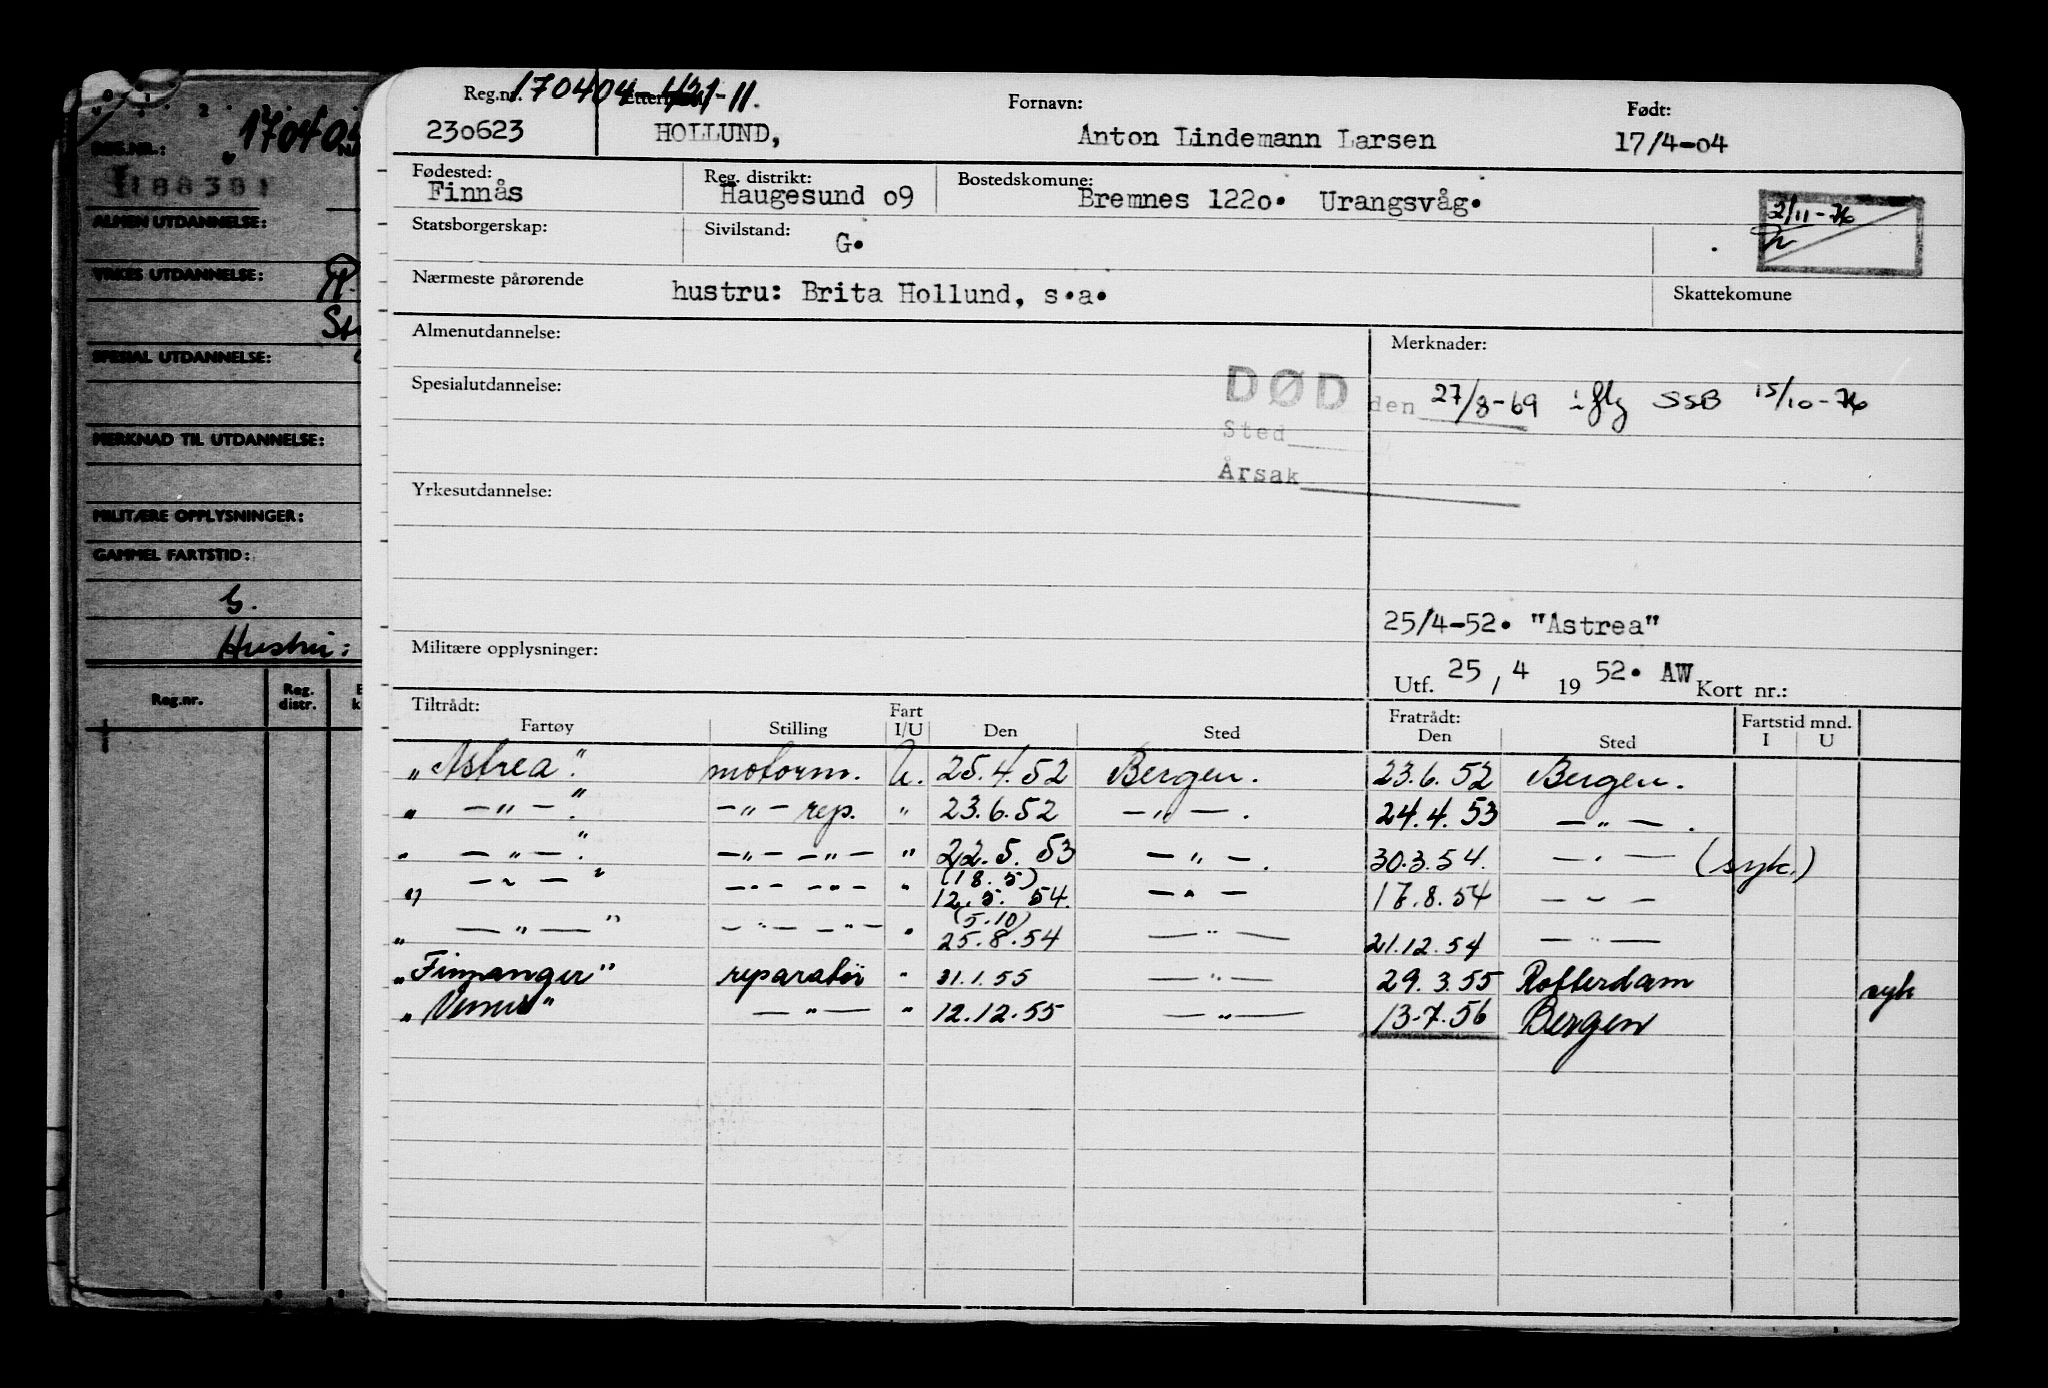 170404
REG.NR.:
188381
ALMEN UTDANNELSE:
YRKES UTDANNELSE:
SPESIAL UTDANNELSE:
MERKNAD TIL UTDANNELSE:
MILITÆRE OPPLYSNINGER:
GAMMEL FARTSTID:
G.
Hustru:
Reg.nr. Reg. distr.
Reg.nr. 170404-421-11.
230623 HOLLUND, Fornavn: Anton Lindemann Larsen Født: 17/4-04
Fødested: Finnås Reg. distrikt: Haugesund 09 Bostedskomune: Bremnes 1220. Urangsvåg.
2/11-76
Statsborgerskap: Sivilstand: G.
Nærmeste pårørende hustru: Brita Hollund, s.a. Skattekomune
Almenutdannelse: Merknader:
Spesialutdannelse: DØD den 27/8-69 iflg SSB 15/10-76
Sted
Årsak
Yrkesutdannelse:
25/4-52. "Astrea"
Militære opplysninger: Utf. 25 / 4 19 52. AW Kort nr.:
Tiltrådt: Fratrådt: Fartstid mnd.
Fartøy Stilling Fart I/U Den Sted Den Sted I U
"Astrea". motorm. U. 25.4.52 Bergen. 23.6.52 Bergen.
" -"-". -"- rep. " 23.6.52 -"-. 24.4.53 -"-.
" -"-". -"- -"- " 22.5.53 -"-. 30.3.54. -"- (syk.)
(18.5)
" -"-" -"- -"- " 12.5.54. -"- 17.8.54 -"-
(5.10)
" -"-" -"- -"- " 25.8.54 -"- 21.12.54 -"-
"Finnanger" reparatør " 31.1.55 -"- 29.3.55 Rotterdam syk
"Venus" -"- " 12.12.55 -"- 13-7.56 Bergen